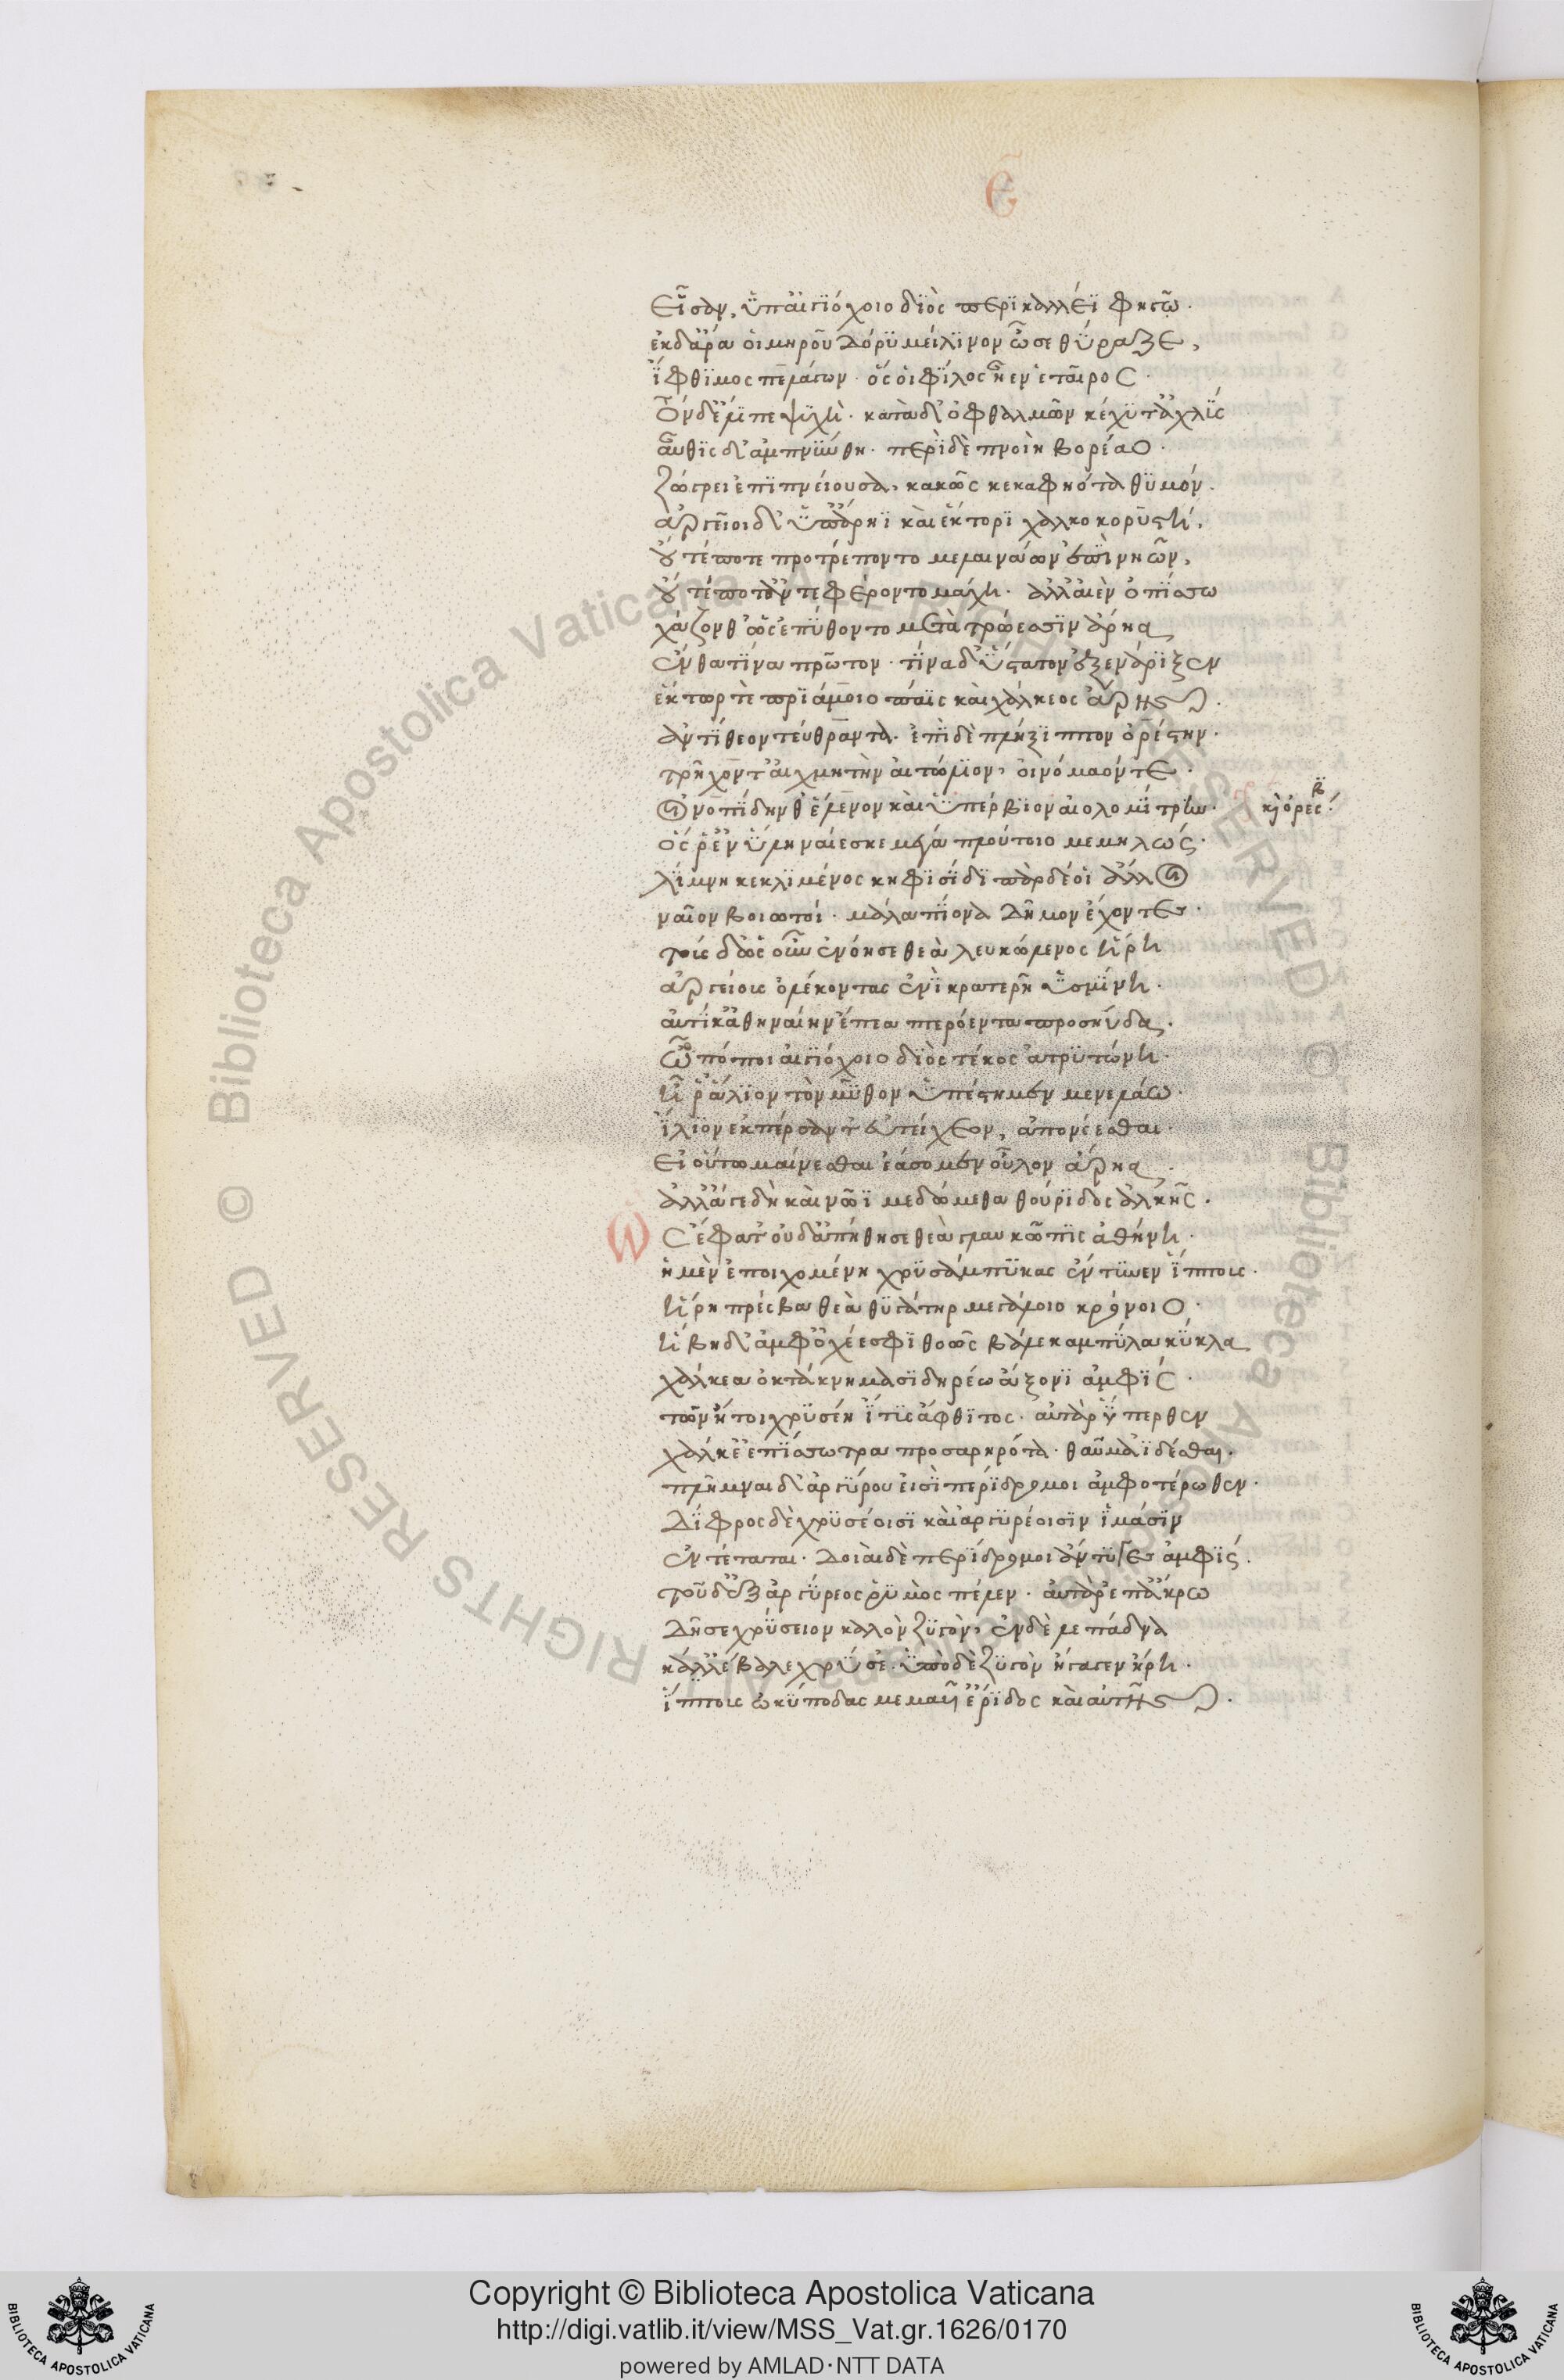 Ε
εἷσαν, ὑπ' αἰγιόχοιο διὸς περικαλλέϊ φηγῶ·
ἐκ δ' ἄρα οἱ μηροῦ δόρυ μείλινον ὦσε θύραζε,
ἴφθιμος πελάγων· ὅς οἱ φίλος ἦεν ἑταῖρος·
τὸν δ' ἔλιπε ψυχὴ· κατὰ δ' ὀφθαλμῶν κέχυτ' ἀχλύς
αὖθις δ' ἀμπνύνθη· περὶ δὲ πνοιὴ βορέαο·
ζώγρει ἐπιπνείουσα, κακῶς κεκαφηότα θυμόν·
ἀργεῖοι δ' ὑπ' ἄρηϊ καὶ ἕκτορι χαλκοκορυστῆ,
οὔτέ ποτε προτρέποντο μελαινάων ἐπὶ νηῶν,
οὔτέ ποτ' ἀντεφέροντο μάχη· ἀλλ' αἰὲν ὀπίσσω
χάζονθ' ὡς ἐπύθοντο μετὰ τρώεσσιν ἄρηα
ἔνθα τίνα πρῶτον· τίνα δ' ὕστατον ἐξενάριξεν
ἕκτωρ τὲ πριάμοιο πάϊς καὶ χάλκεος ἄρης·
ἀντίθεον τεύθραντα· ἐπὶ δὲ πλήξιππον ὀρέστην·
τρῆχόν τ' αἰχμητὴν αἰτώλιον, οἰνόμαόν τε·
οἰνοπίδην θ' ἕλενον καὶ ὑπέρβιον αἰολομίτρην·
κ ὀρές
ὅς ῥ' ἐν ὕλη ναίεσκε μέγα πλούτοιο μεμηλώς·
λίμνη κεκλιμένος κηφισίδι πὰρ δέ οἱ ἄλλοι
ναῖον βοιωτοί· μάλα πίονα δῆμον ἔχοντες·
τοὺς δ' ὡς οὖν ἐνόησε θεὰ λευκώλενος ἥρη
ἀργείους ὀλέκοντας ἐνὶ κρατερῆ ὑσμίνη·
αὐτίκ' ἀθηναίην ἔπεα πτερόεντα προσηύδα·
ὦ πόποι αἰγιόχοιο διὸς τέκος ἀτρυτώνη·
ἦ ῥ' ἅλιον τὸν μῦθον ὑπέστημεν μενελάω·
ἴλιον ἐκπέρσαντ' εὐτείχεον, ἀπονέεσθαι·
εἰ οὕτω μαίνεσθαι ἐάσομεν οὖλον ἄρηα·
ἀλλ' ἄγε δὴ καὶ νῶϊ μεδώμεθα θούριδος ἀλκῆς·
ὣς ἔφατ' οὐδ' ἀπίθησε θεὰ γλαυκῶπις ἀθήνη·
ἡ μὲν ἐποιχομένη χρυσάμπυκας ἔντυεν ἵππους·
ἥρη πρέσβα θεὰ θυγάτηρ μεγάλοιο κρόνοιο·
ἥβη δ' ἀμφ' ὀχέεσφι θοῶς βάλε καμπύλα κύκλα
χάλκεα ὀκτάκνημα σιδηρέω ἄξονι ἀμφίς·
τῶν ἤτοι χρυσέη ἴτυς ἄφθιτος· αὐτὰρ ὕπερθεν
χάλκε' ἐπίσσωτρα προσαρηρότα· θαῦμα ἰδέσθαι·
πλῆμναι δ' ἀργύρου εἰσὶ περίδρομοι ἀμφοτέρωθεν·
δίφρος δὲ χρυσέοισι καὶ ἀργυρέοισιν ἱμάσιν
ἐντέταται· δοιαὶ δὲ περίδρομοι ἄντυγες ἀμφίς·
τοῦ δ' ἐξ ἀργύρεος ῥυμὸς πέλεν· αὐτὰρ ἐπ' ἄκρω
δῆσε χρύσειον καλὸν ζυγὸν, ἐν δὲ λέπαδνα
κάλλ' ἔβαλε χρύσε· ὑπὸ δὲ ζυγὸν ἤγαγεν ἥρη·
ἵππους ὠκύποδας μεμαυῖ' ἔριδος καὶ αὐτῆς·
© Biblioteca Apostolica Vaticana ALL RIGHTS RESERVED
© Biblioteca Apostolica Vaticana ALL RIGHTS RESERVED
Copyright © Biblioteca Apostolica Vaticana
http://digi.vatlib.it/view/MSS_Vat.gr.1626/0170
powered by AMLAD·NTT DATA
BIBLIOTECA APOSTOLICA VATICANA
BIBLIOTECA APOSTOLICA VATICANA